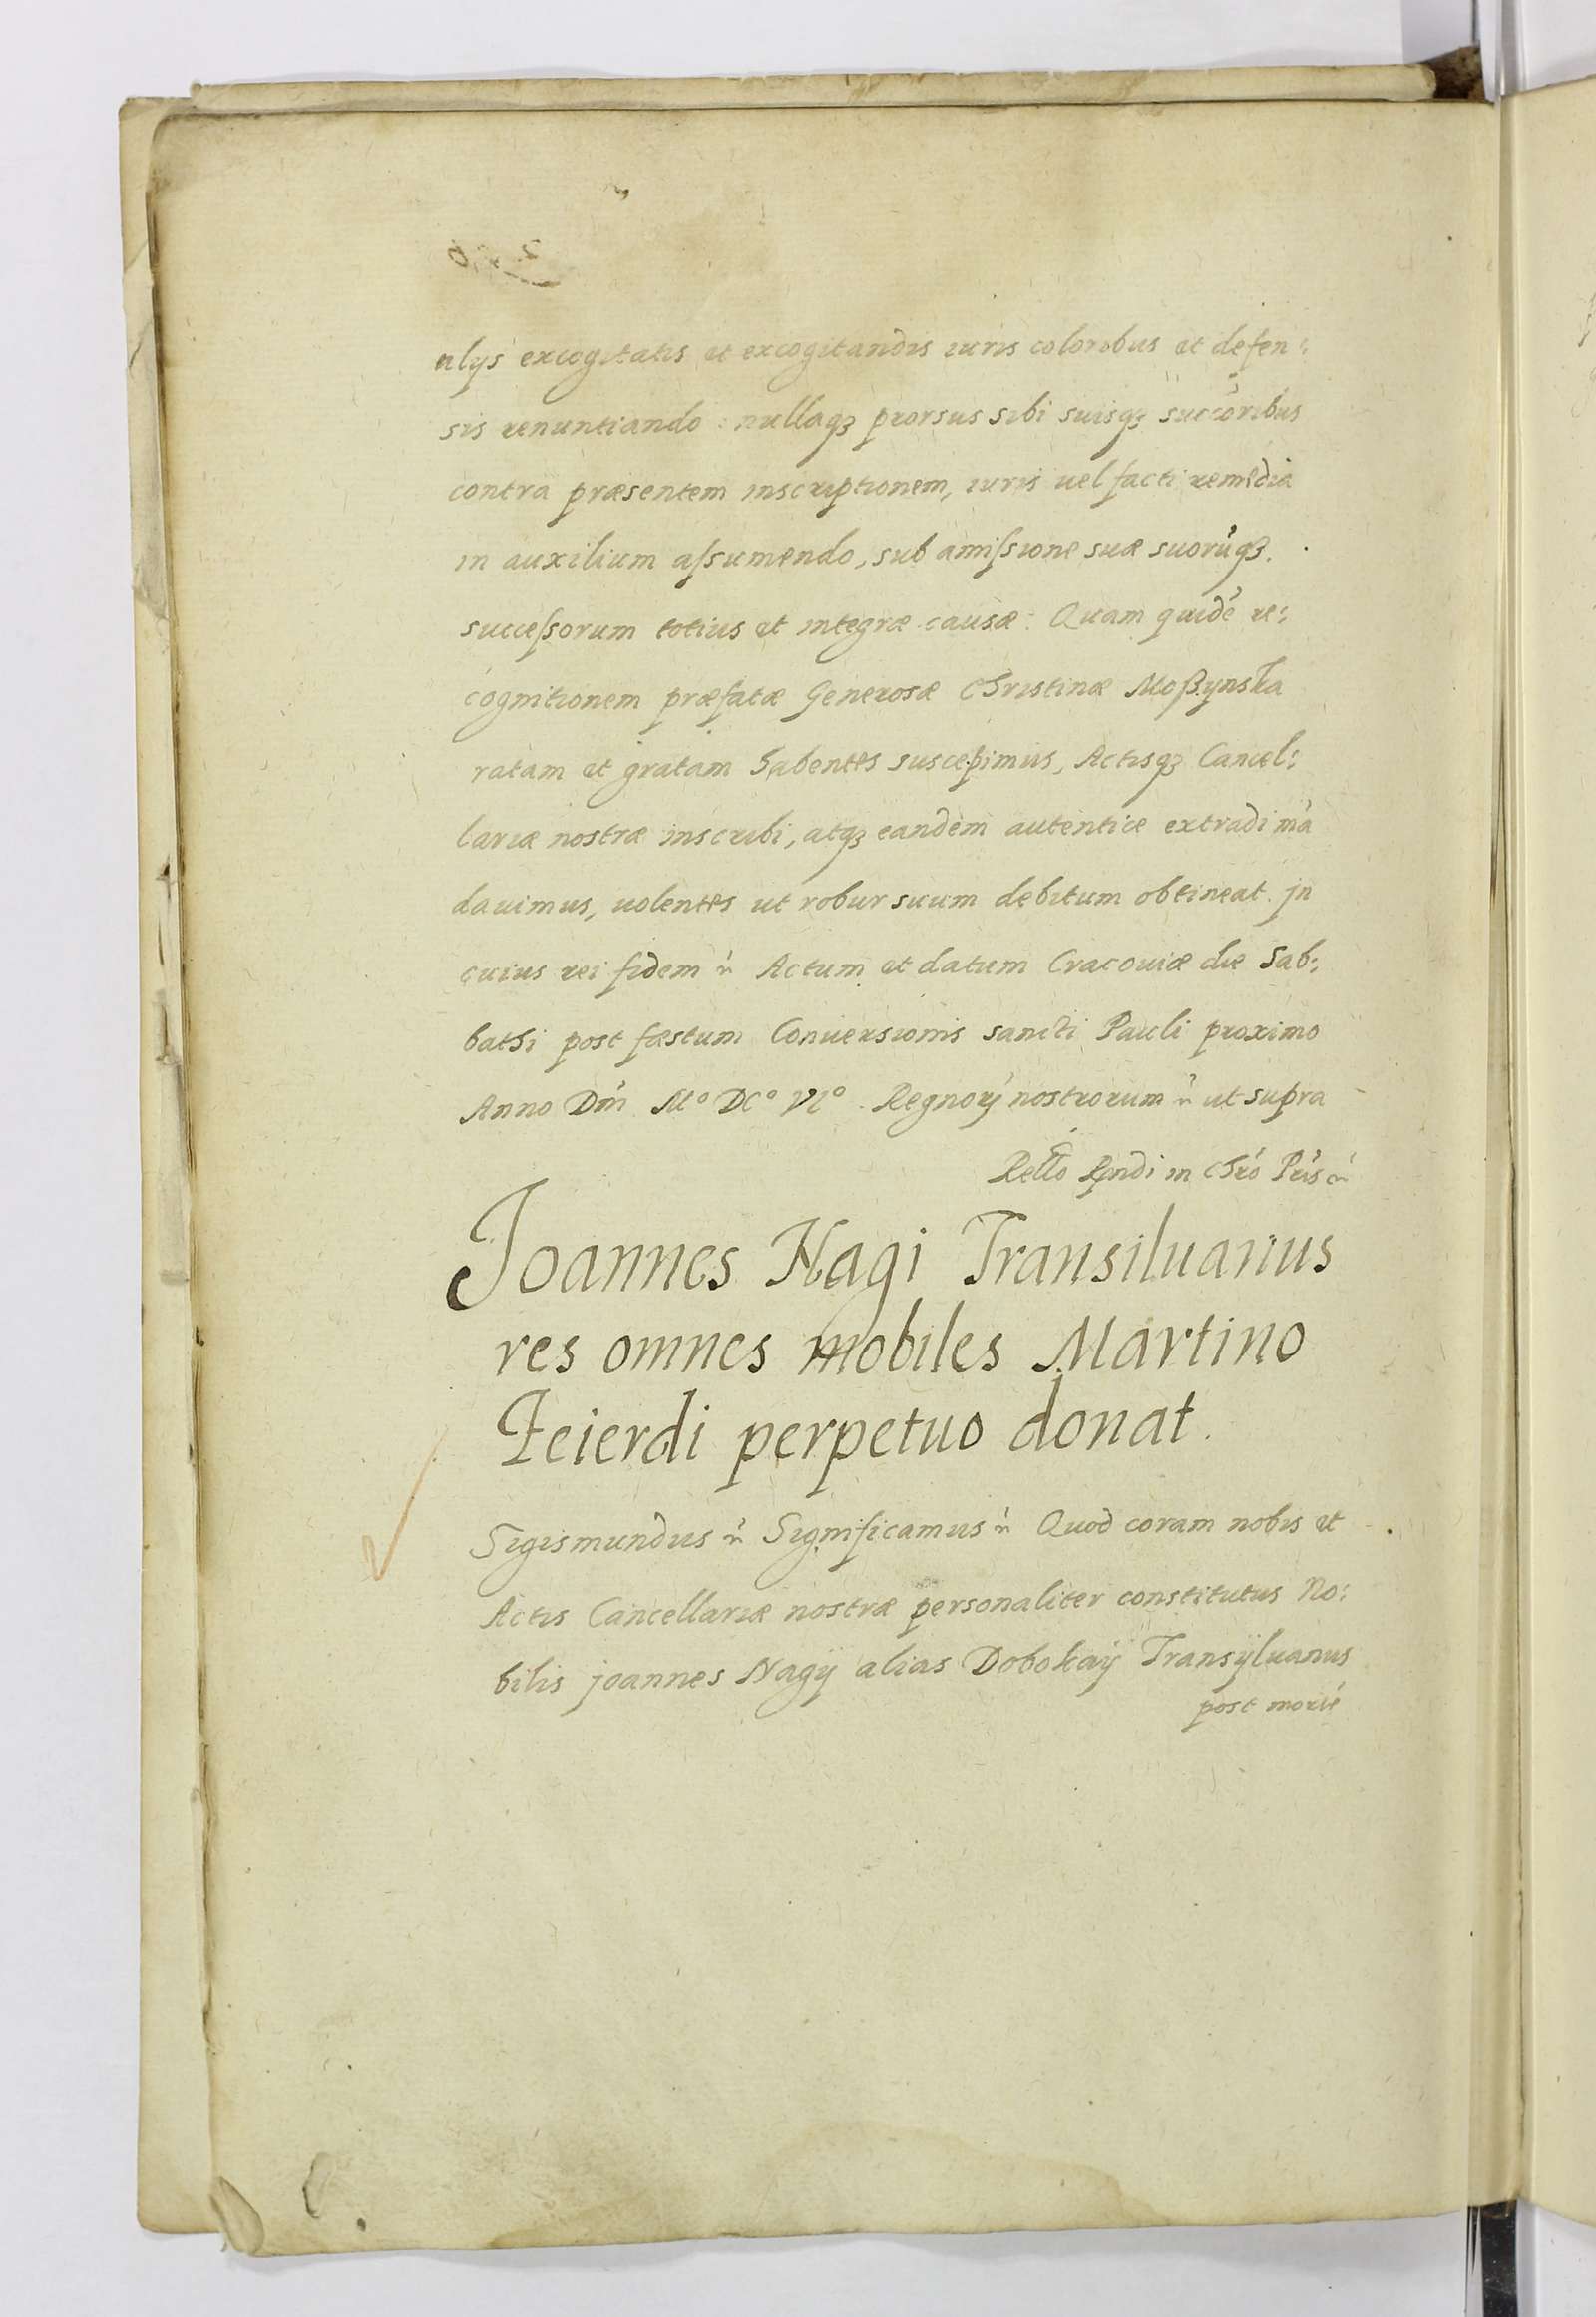 alijs excogitatis et excogitandis iuris coloribus et defen:
sis renuntiando: nullaq3 prorsus sibi suisq3 succoribus
contra præsentem inscriptionem, iuris uel facti remedia
in auxilium aſsumendo, sub amiſsione suæ suorūq3.
succeſsorum totius et integræ causæ: Quam quidē re:
cognitionem præfatæ Generosæ Christinæ Moßynska
ratam et gratam habentes suscepimus, Actisq3 Cancel:
lariæ nostræ inscribi, atq3 eandem autentice extradi mā
dauimus, uolentes ut robur suum debitum obtineat. jn
cuius rei fidem &c. Actum et datum Cracouiæ die Sab:
bathi post fæstum Conuersionis sancti Pauli proximo
Anno Dm̄ M° DC° VI°. Regnorῳ nostrorum &c. ut supra
Rello Rn̄di in Chrō Pris &c.
Joannes Nagi Transiluanus
res omnes mobiles Martino
Feierdi perpetuo donat.
Sigismundus &c. Significamus &c. Quod coram nobis et
Actis Cancellariæ nostræ personaliter constitutus No:
bilis joannes Nagÿ alias Dobokaÿ Transÿluanus
post